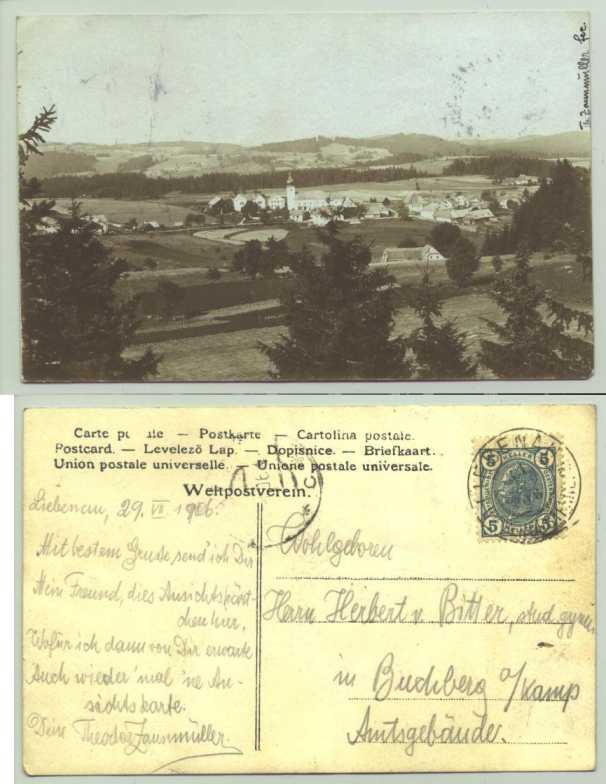 Th. Zaunmüller fec.
Carte postale — Postkarte — Cartolina postale.
Postcard. — Levelező Lap. — Dopisnice. — Briefkaart.
Union postale universelle. — Unione postale universale.
Weltpostverein.
LIEBENAU
5 5
5 5
Liebenau, 29. VII 1906.
Mit bestem Gruße, send' ich Dir
Mein Freund, dies Ansichtskärt-
chen hier,
Wofür ich dann von Dir erwarte
Auch wieder 'mal 'ne An-
sichtskarte.
Dein Theodor Zaunmüller.
Wohlgeboren
Herrn Herbert v. Bitter, stud. gymn.
in Buchberg a/Kamp
Amtsgebäude.